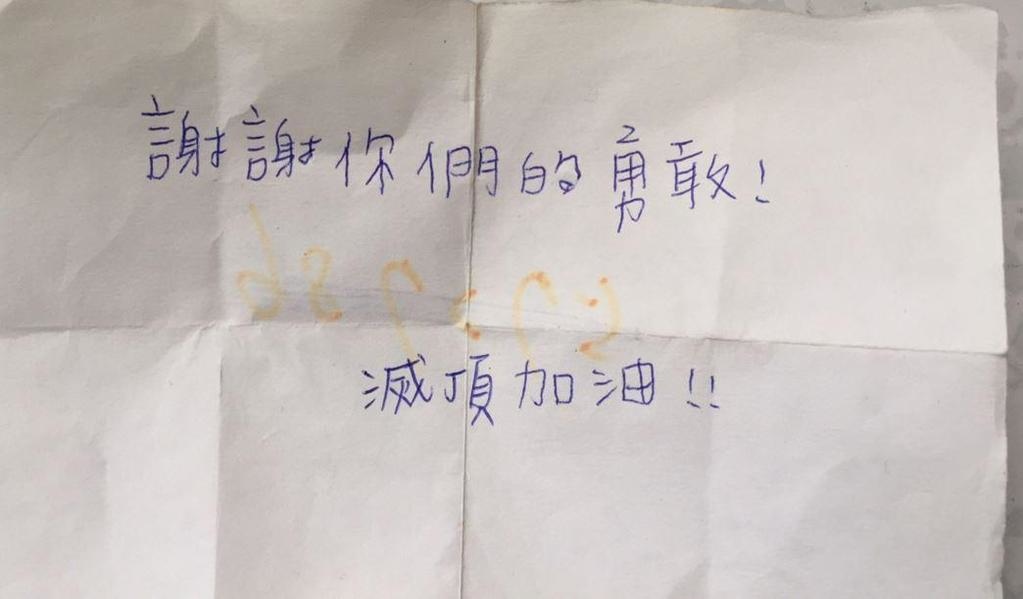 謝謝你們的勇敢!
滅頂加油!!